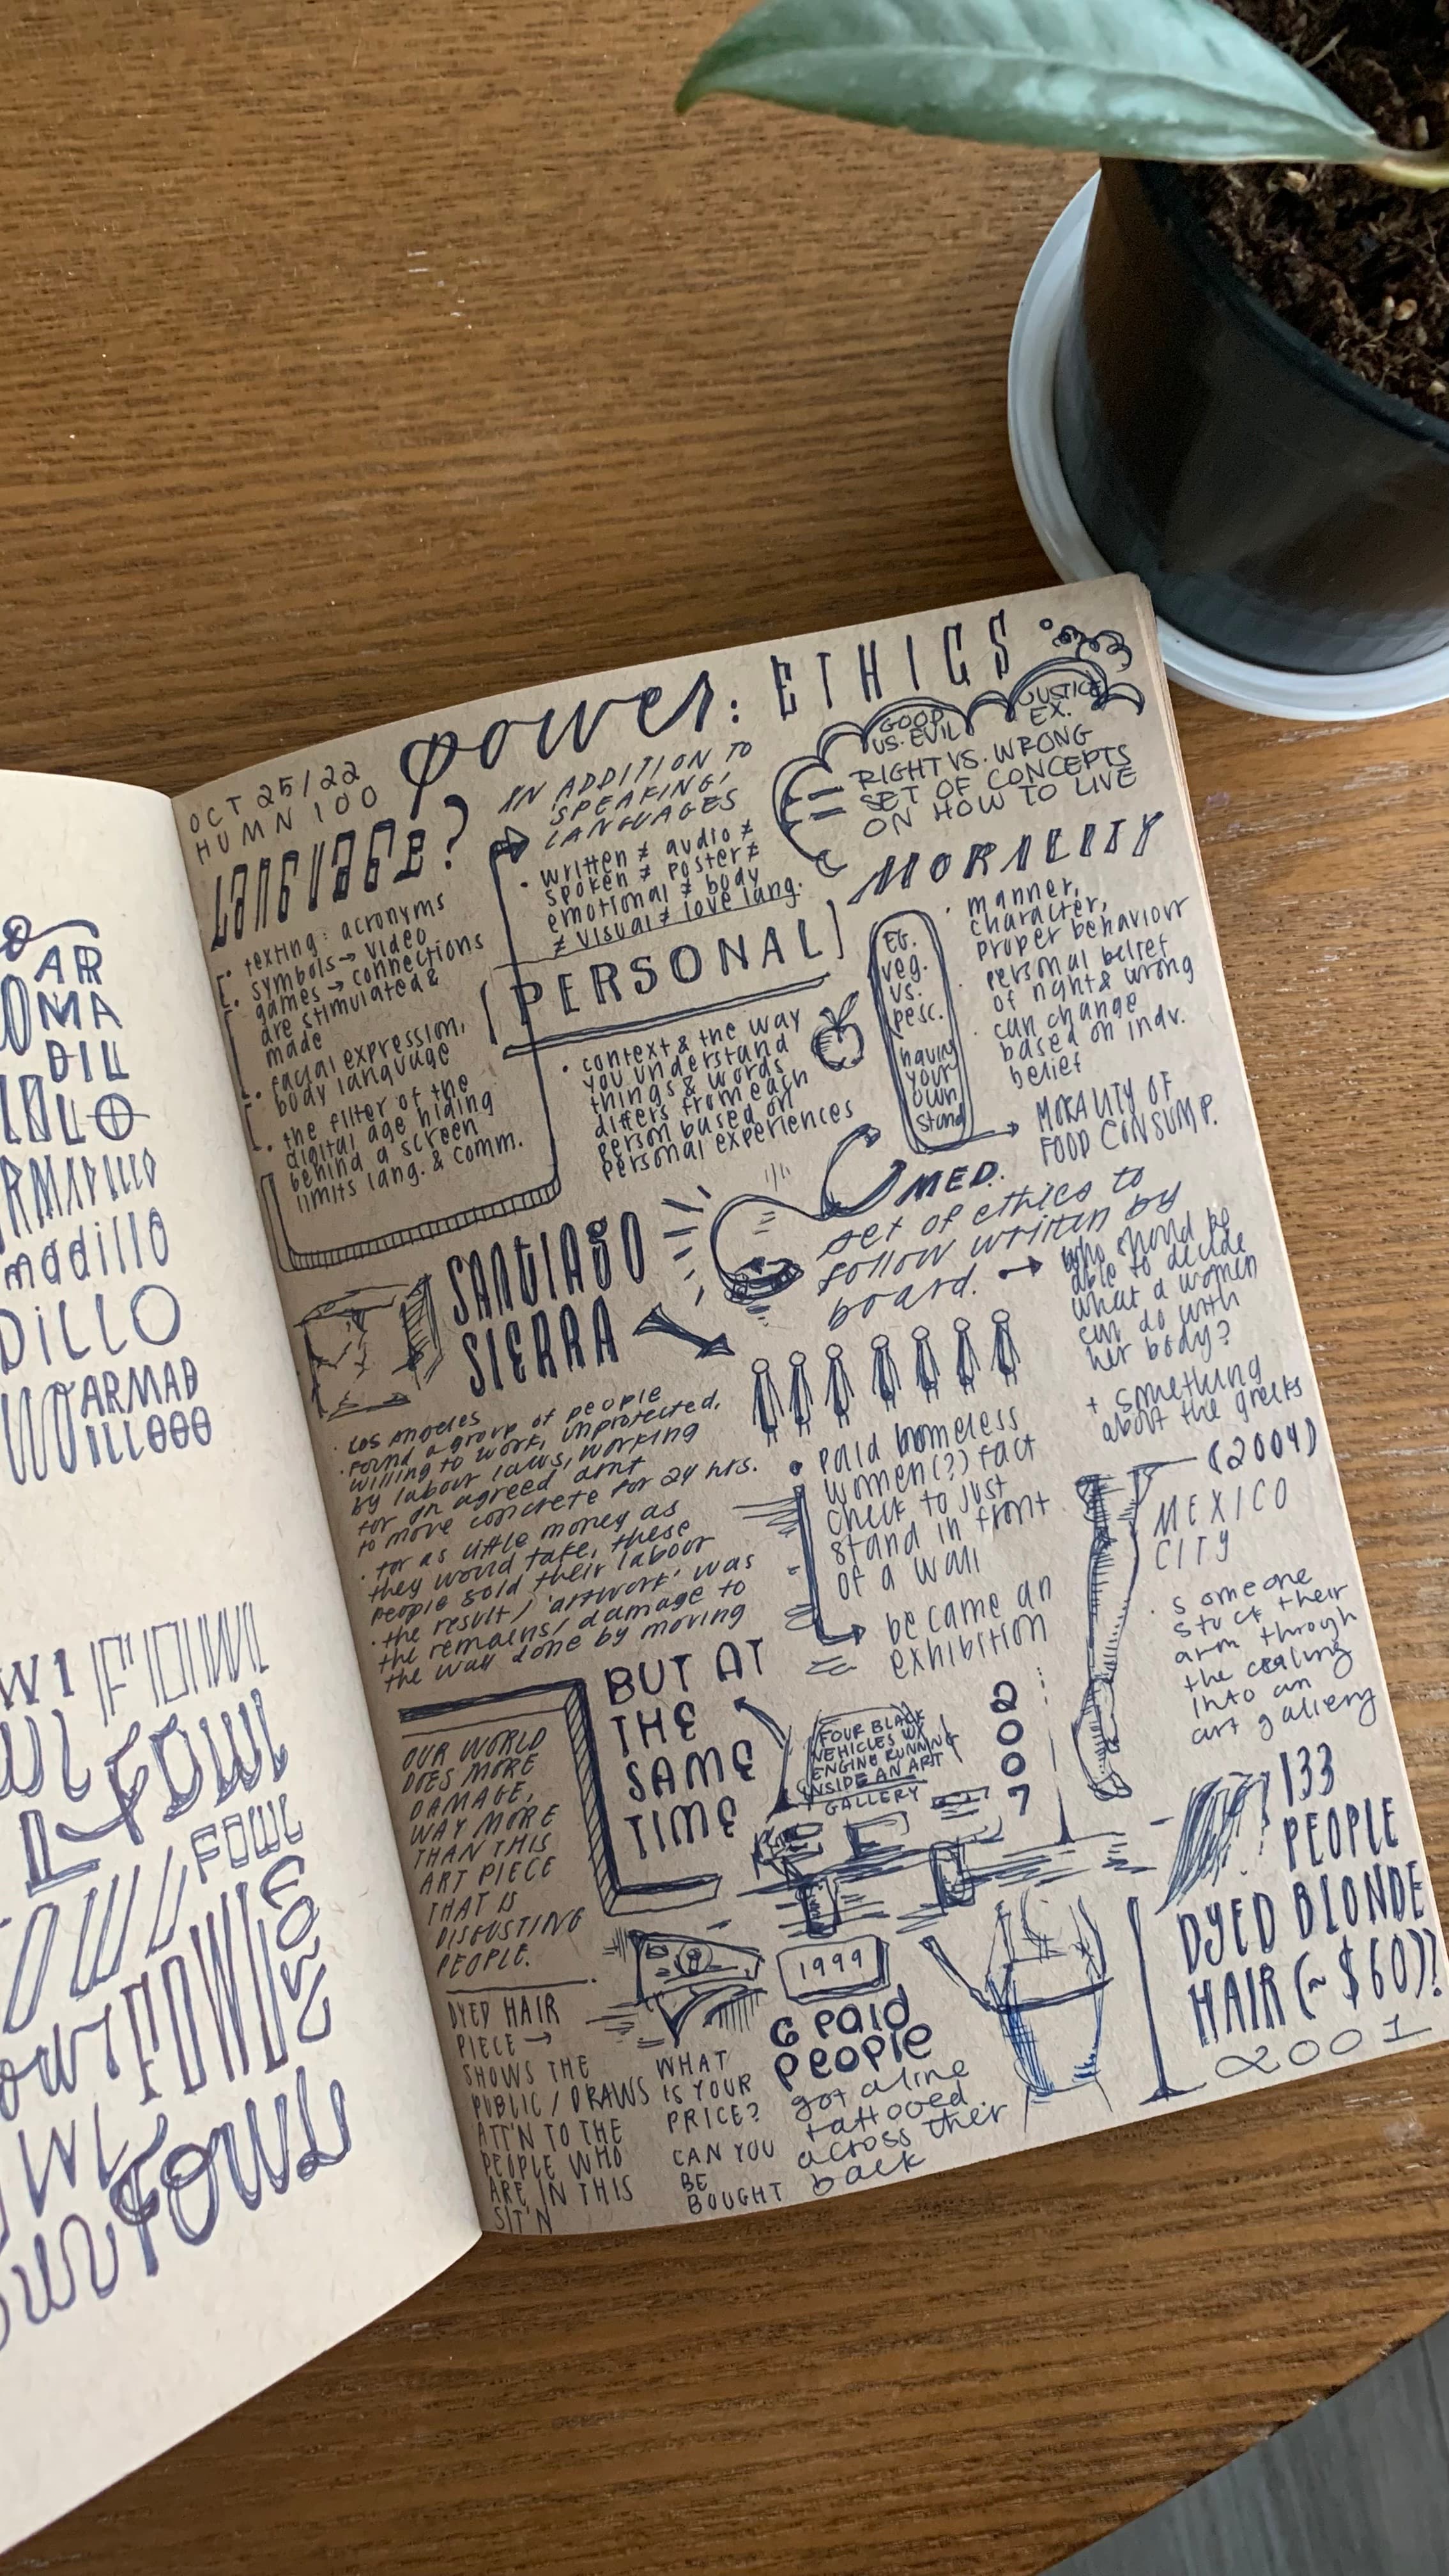 AR
MA
DIL
LO
RMADILLO
madillo
DiLLO
ARMAD
iLLOOO
FOWL
FOWL
FOWL
FOWL
FOWL
OCT 25/22
HUMN 100
power: ETHICS
LANGUAGE?
• texting: acronyms
• symbols → video
games → connections
are stimulated &
made
• facial expression,
body language
• the filter of the
digital age hiding
behind a screen
limits lang. & comm.
IN ADDITION TO
SPEAKING,
LANGUAGES
• written ≠ audio ≠
spoken ≠ poster ≠
emotional ≠ body
≠ visual ≠ love lang.
[PERSONAL]
• context & the way
you understand
things & words
differs from each
person based on
personal experiences
GOOD
VS. EVIL
JUSTICE
EX.
RIGHT VS. WRONG
SET OF CONCEPTS
ON HOW TO LIVE
MORALITY
• manner,
character,
proper behaviour
• personal belief
of right & wrong
• can change
based on indv.
belief
EG.
veg.
vs.
pesc.
having
your
own
stand
→ MORALITY OF
FOOD CONSUMP.
MED.
set of ethics to
follow written by
board. → who should be
able to decide
what a women
can do with
her body?
+ something
about the greeks
SANTIAGO
SIERRA
• Los Angeles
• found a group of people
willing to work, unprotected,
by labour laws, working
for an agreed amt
to move concrete for 24 hrs.
• for as little money as
they would take, these
people sold their labour
• the result/'artwork' was
the remains/damage to
the wall done by moving
• paid homeless
women(?) fact
check to just
stand in front
of a wall
be came an
exhibition
(2004)
MEXICO
CITY
• someone
stuck their
arm through
the cealing
into an
art gallery
OUR WORLD
DOES MORE
DAMAGE,
WAY MORE
THAN THIS
ART PIECE
THAT IS
DISGUSTING
PEOPLE.
BUT AT
THE
SAME
TIME
FOUR BLACK
VEHICLES W/
ENGINE RUNNING
INSIDE AN ART
GALLERY
2
0
0
7
133
PEOPLE
DYED BLONDE
HAIR (~ $60)?!
2001
DYED HAIR
PIECE →
SHOWS THE
PUBLIC/DRAWS
ATT'N TO THE
PEOPLE WHO
ARE IN THIS
SIT'N
WHAT
IS YOUR
PRICE?
CAN YOU
BE
BOUGHT
1999
6 PAID
PEOPLE
got a line
tattooed
across their
back